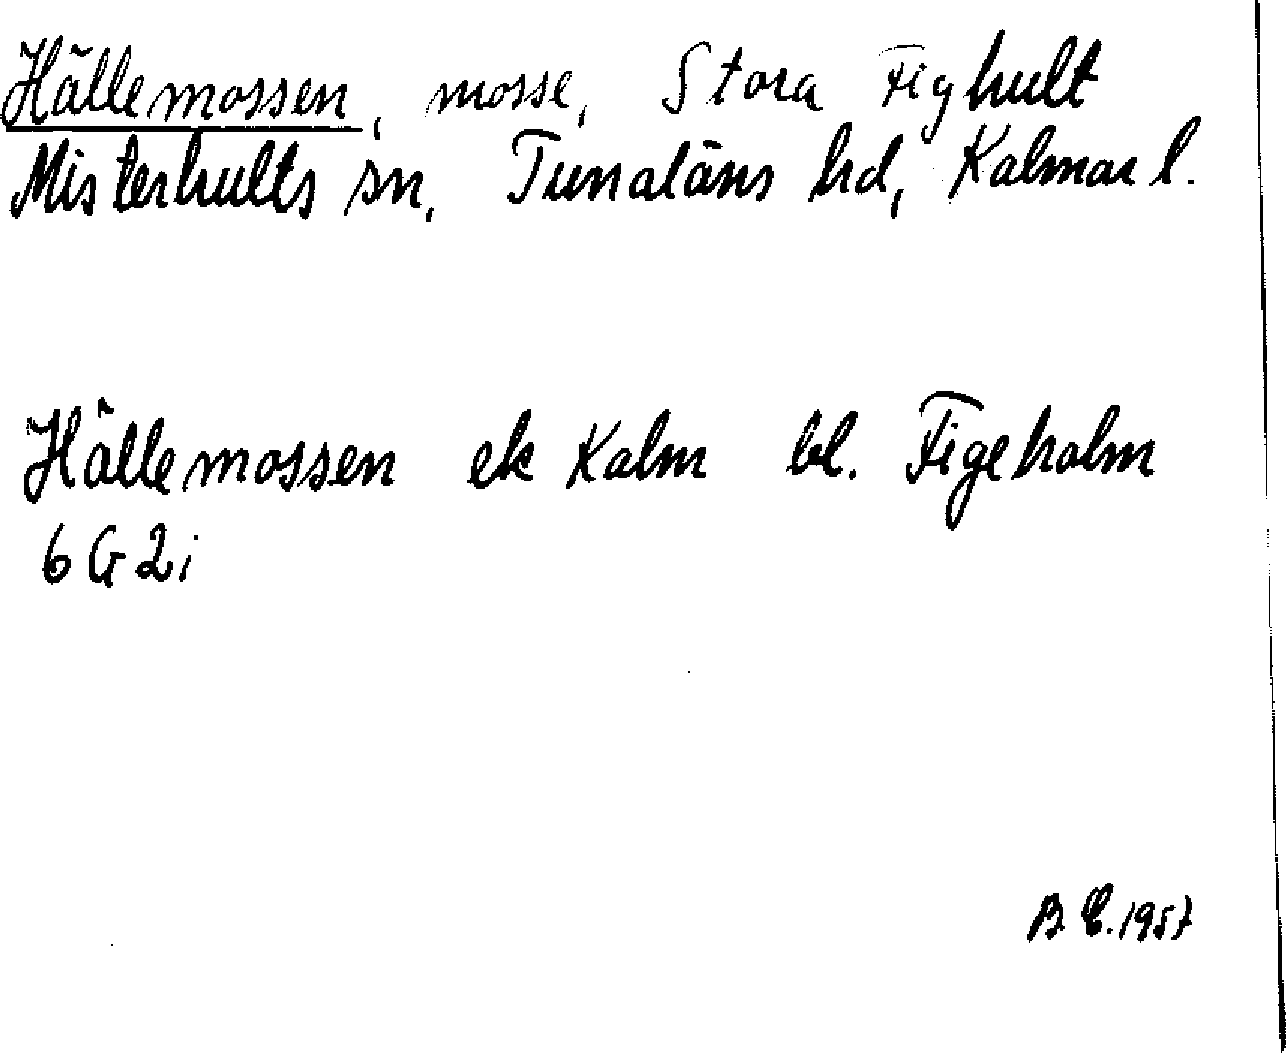 Hällemossen, mosse, Stora Fighult
Misterhults sn, Tunaläns hd, Kalmar l.
Hällemossen ek Kalm bl. Figeholm
6 G 2i
B E. 1957